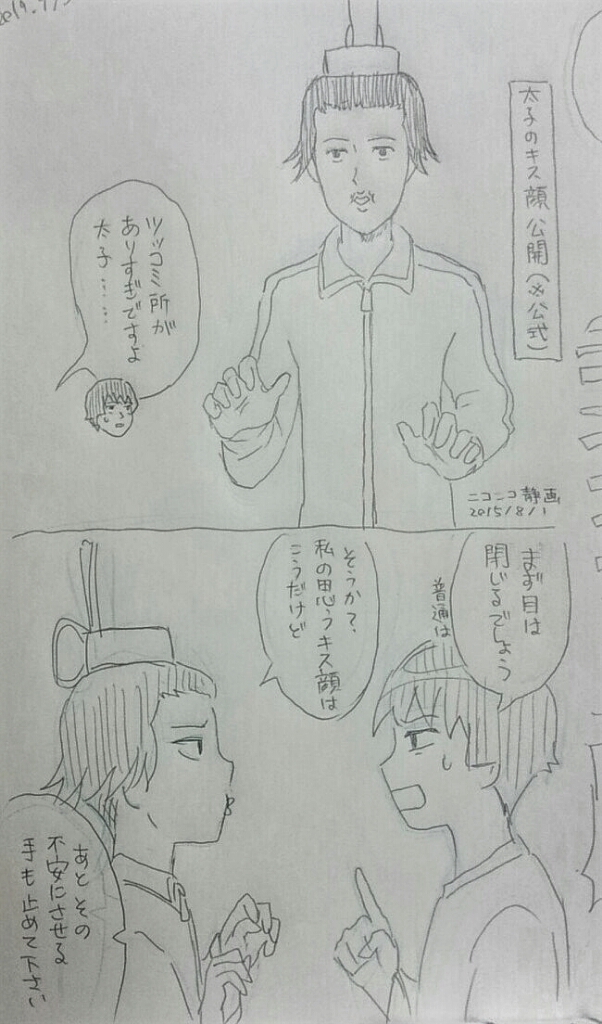 太子のキス顔公開(※公式)
ツッコミ所が
ありすぎですよ
太子……
ニコニコ静画
2015/8/1
まず目は
閉じるでしょう
普通は
そうか?
私の思うキス顔は
こうだけど
あと その
不安にさせる
手も止めて下さい